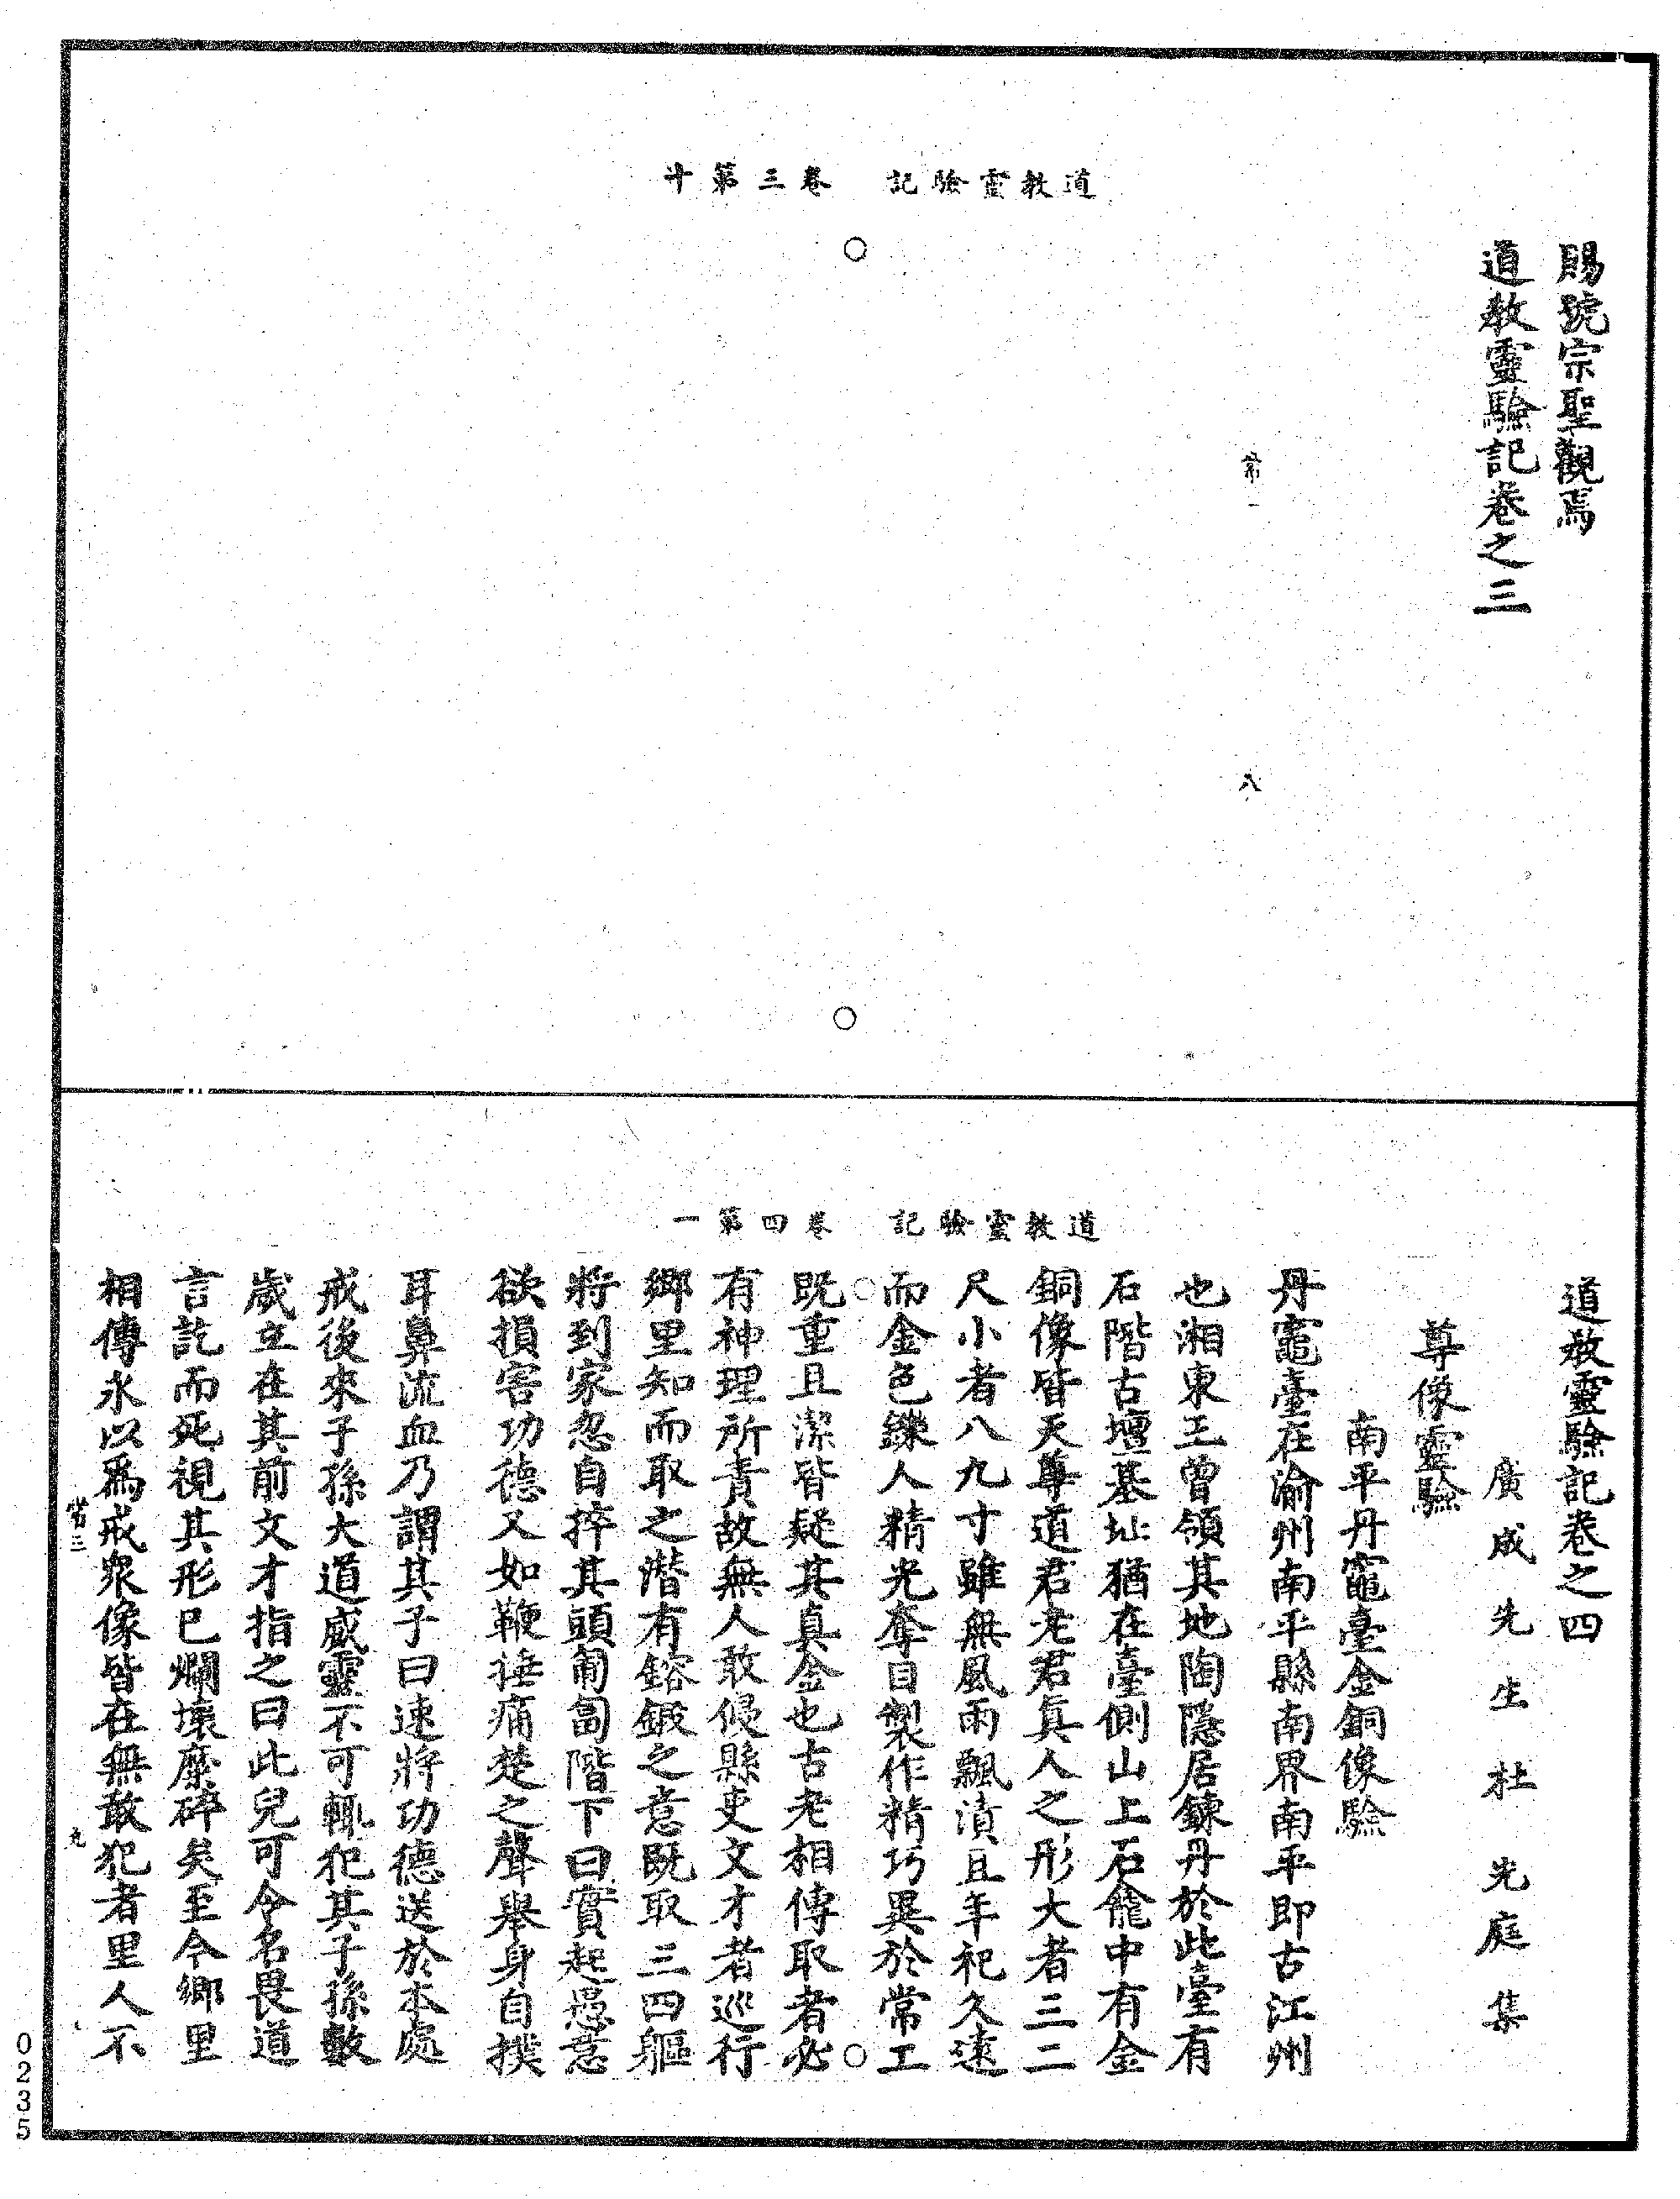 道教靈驗記　卷三第十
賜號宗聖觀焉
道教靈驗記卷之三
常一
八
道教靈驗記　卷四第一
道教靈驗記卷之四
廣成先生杜光庭集
尊像靈驗
南平丹竈臺金銅像驗
丹竈臺在渝州南平縣南界南平即古江州
也湘東王曾領其地陶隱居鍊丹於此臺有
石階古壇基址猶在臺側山上石龕中有金
銅像皆天尊道君老君真人之形大者三二
尺小者八九寸雖無風雨飄漬且年祀久遠
而金色鑠人精光奪目製作精巧異於常工
既重且潔皆疑其真金也古老相傳取者必
有神理所責故無人敢侵縣吏文才者巡行
鄉里知而取之潛有鎔鍛之意既取三四軀
將到家忽自捽其頭匍匐階下曰實起惡意
欲損害功德又如鞭捶痛楚之聲舉身自撲
耳鼻流血乃謂其子曰速將功德送於本處
戒後來子孫大道威靈不可輒犯其子孫數
歲立在其前文才指之曰此兒可令名畏道
言訖而死視其形已爛壞糜碎矣至今鄉里
相傳永以為戒眾像皆在無敢犯者里人不
常三
九
0235